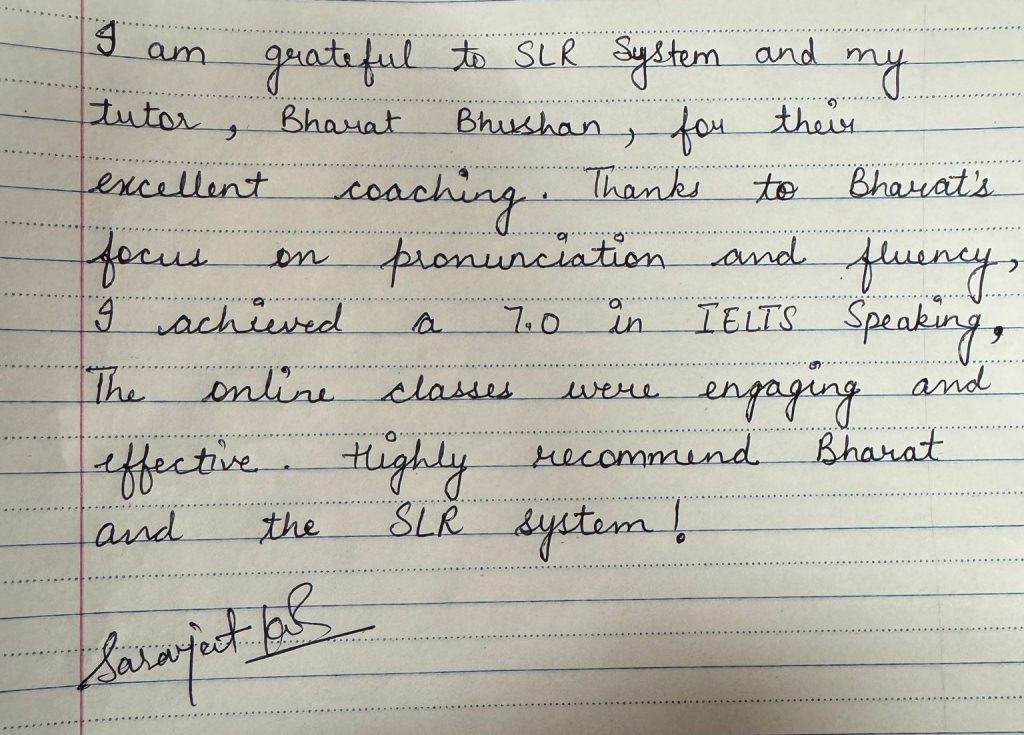 I am grateful to SLR System and my
tutor, Bharat Bhushan, for their
excellent coaching. Thanks to Bharat's
focus on pronunciation and fluency,
I achieved a 7.0 in IELTS Speaking.
The online classes were engaging and
effective. Highly recommend Bharat
and the SLR system!